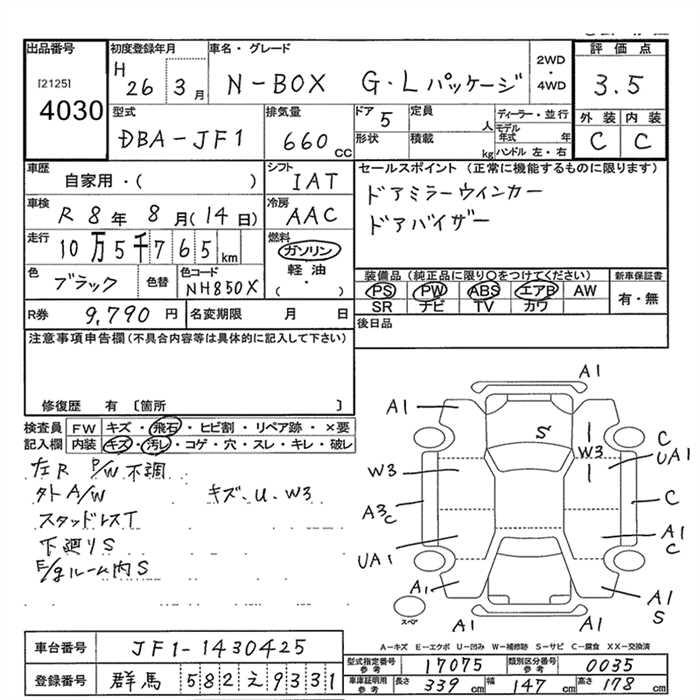 出品番号
[2125]
4030
初度登録年月
H 26 3月
車名・グレード
N-BOX G・Lパッケージ
2WD
・
4WD
評価点
3.5
外装 内装
C C
型式
DBA-JF1
排気量
660 CC
ドア 5
定員 人
形状
積載 kg
ディーラー・並行
モデル年式 年
ハンドル 左・右
車歴
自家用・( )
シフト
IAT
セールスポイント (正常に機能するものに限ります)
ドアミラーウィンカー
ドアバイザー
車検
R 8年 8月(14日)
冷房
AAC
走行
10万5千765km
燃料
ガソリン
軽油
( ・ )
色
ブラック
色替
色コード
NH850X
装備品 (純正品に限り○をつけてください)
PS PW ABS エアB AW
SR ナビ TV カワ
新車保証書
有・無
R券 9,790円
名変期限 月 日
後日品
注意事項申告欄(不具合内容等は具体的に記入して下さい)
修復歴 有 〔箇所 〕
検査員記入欄
FW キズ・飛石・ヒビ割・リペア跡・×要
内装 キズ・汚レ・コゲ・穴・スレ・キレ・破レ
左R P/W不調
外A/W キズ・U・W3
スタッドレスT
下廻りS
E/gルーム内S
A1
A1
A1
S
W3
C
UA1
W3
A3
C
C
UA1
A1
C
A1
A1
A1
S
スペア
A-キズ E-エクボ U-凹み W-補修跡 S-サビ C-腐食 XX-交換済
車台番号 JF1-1430425
登録番号 群馬 582え9331
型式指定番号 参考 17075
類別区分番号 参考 0035
車庫証明用 参考 長さ 339cm 幅 147cm 高さ 178cm